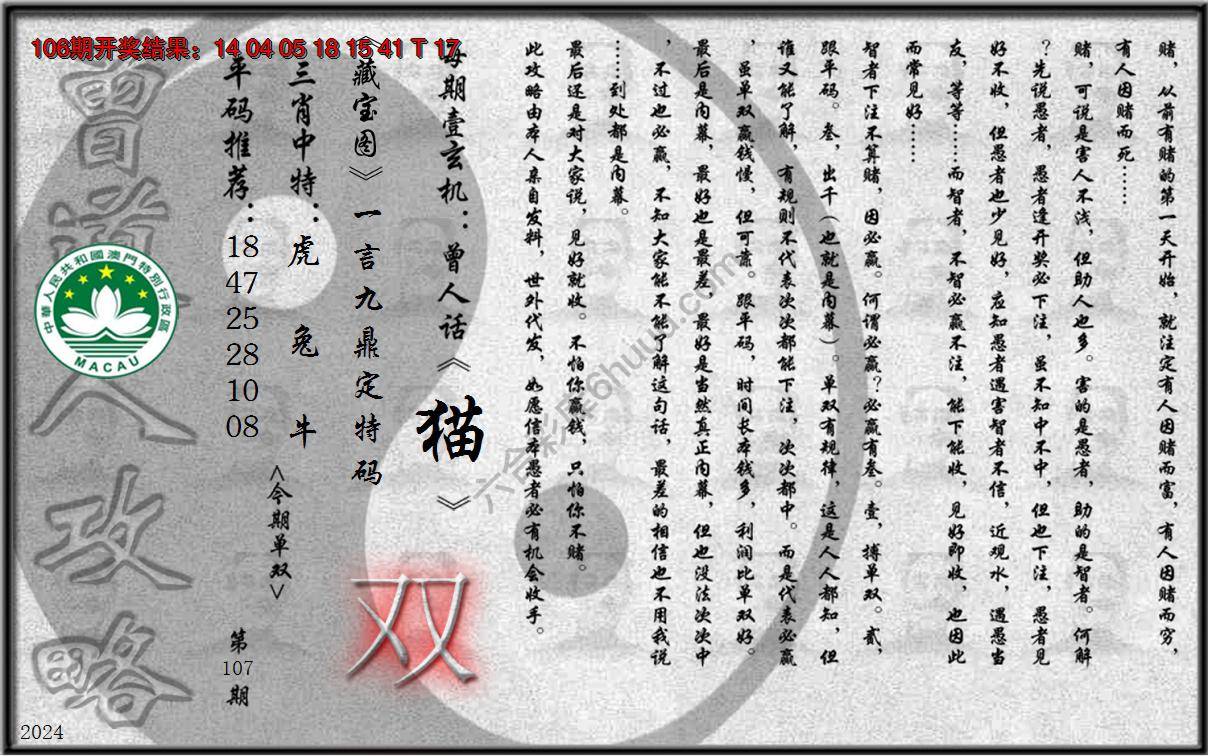 106期开奖结果：14 04 05 18 15 41 T 17
赌，从前有赌的第一天开始，就注定有人因赌而富，有人因赌而穷，
有人因赌而死……
赌，可说是害人不浅，但助人也多。害的是愚者，助的是智者。何解
？先说愚者，愚者逢开奖必下注，虽不知中不中，但也下注，愚者见
好不收，但愚者也少见好，应知愚者遇害智者不信，近观水，遇愚当
友，等等……而智者，不智必赢不注，能下能收，见好即收，也因此
而常见好……
智者下注不算赌，因必赢。何谓必赢？必赢有叁。壹，搏单双。贰，
跟平码。叁，出千（也就是内幕）。单双有规律，这是人人都知，但
谁又能了解，有规则不代表次次都能下注，次次都中。而是代表必赢
，虽单双赢钱慢，但可靠。跟平码，时间长本钱多，利润比单双好。
最后是内幕，最好也是最差，最好是当然真正内幕，但也没法次次中
，不过也必赢，不知大家能不能了解这句话，最差的相信也不用我说
……到处都是内幕。
最后还是对大家说，见好就收。不怕你赢钱，只怕你不赌。
此攻略由本人亲自发料，世外代发，如愿信本愚者必有机会收手。
每期壹玄机：曾人话《猫》
《藏宝图》一言九鼎定特码
双
三肖中特：虎 兔 牛
<今期单双>
平码推荐：
18
47
25
28
10
08
第
107
期
曾道人攻略
中華人民共和國澳門特別行政區
MACAU
六合彩库6huuu.com
2024